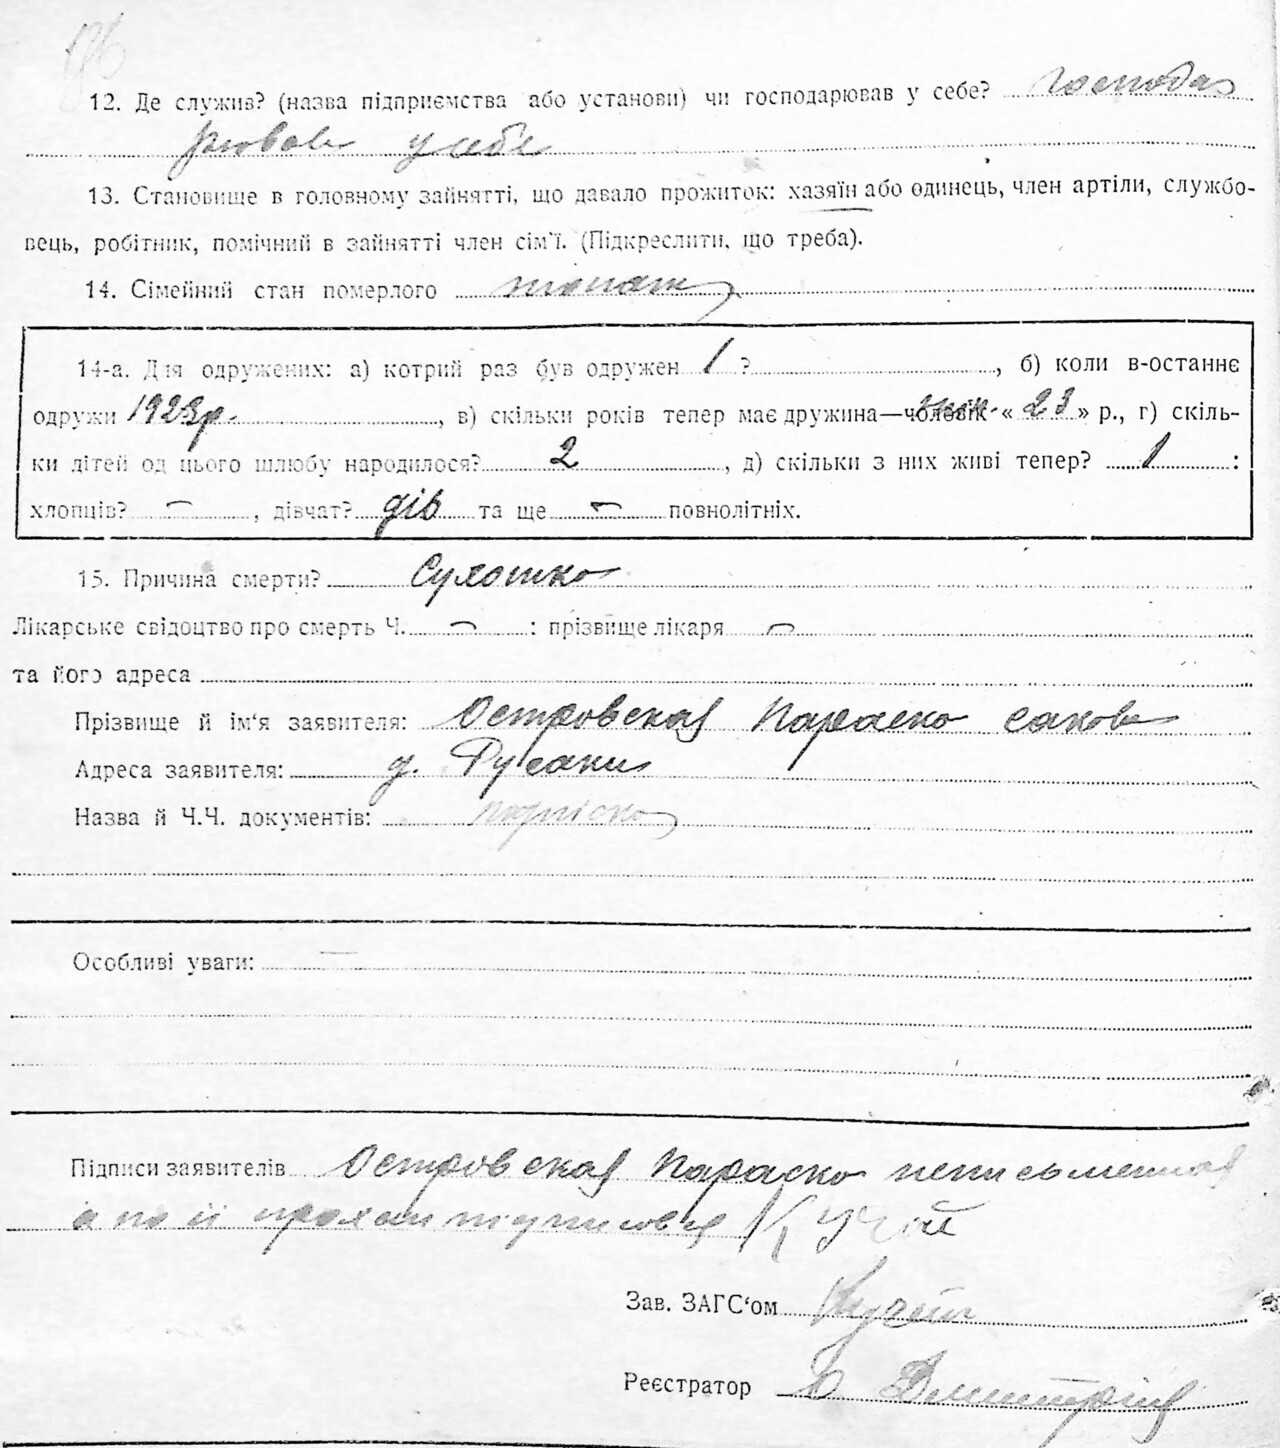 12. Де служив? (назва підприємства або установи) чи господарював у себе? господа
рював у себе
13. Становище в головному зайнятті, що давало прожиток: хазяїн або одинець, член артіли, службо-
вець, робітник, помічний в зайнятті член сім'ї. (Підкреслити, що треба).
14. Сімейний стан померлого
14-а. Для одружених: а) котрий раз був одружен 1 ?, б) коли в-останнє
одружи 1923р., в) скільки років тепер має дружина—чоловік « 23 » р., г) скіль-
ки дітей од цього шлюбу народилося? 2, д) скільки з них живі тепер? 1 :
хлопців? —, дівчат? дів та ще — повнолітніх.
15. Причина смерти? Сухотка
Лікарське свідоцтво про смерть Ч. — : прізвище лікаря —
та його адреса
Прізвище й ім'я заявителя: Островская Параско Сакова
Адреса заявителя: д. Русаки
Назва й Ч.Ч. документів:
Особливі уваги: —
Підписи заявителів Островская Параско неписьменная
а по її прохан підписовся
Зав. ЗАГС'ом
Реєстратор